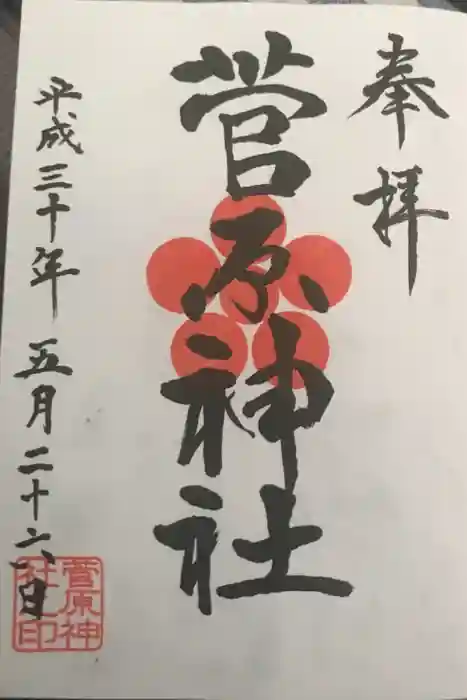 奉拝
菅原神社
平成三十年五月二十六日
菅原神
社印